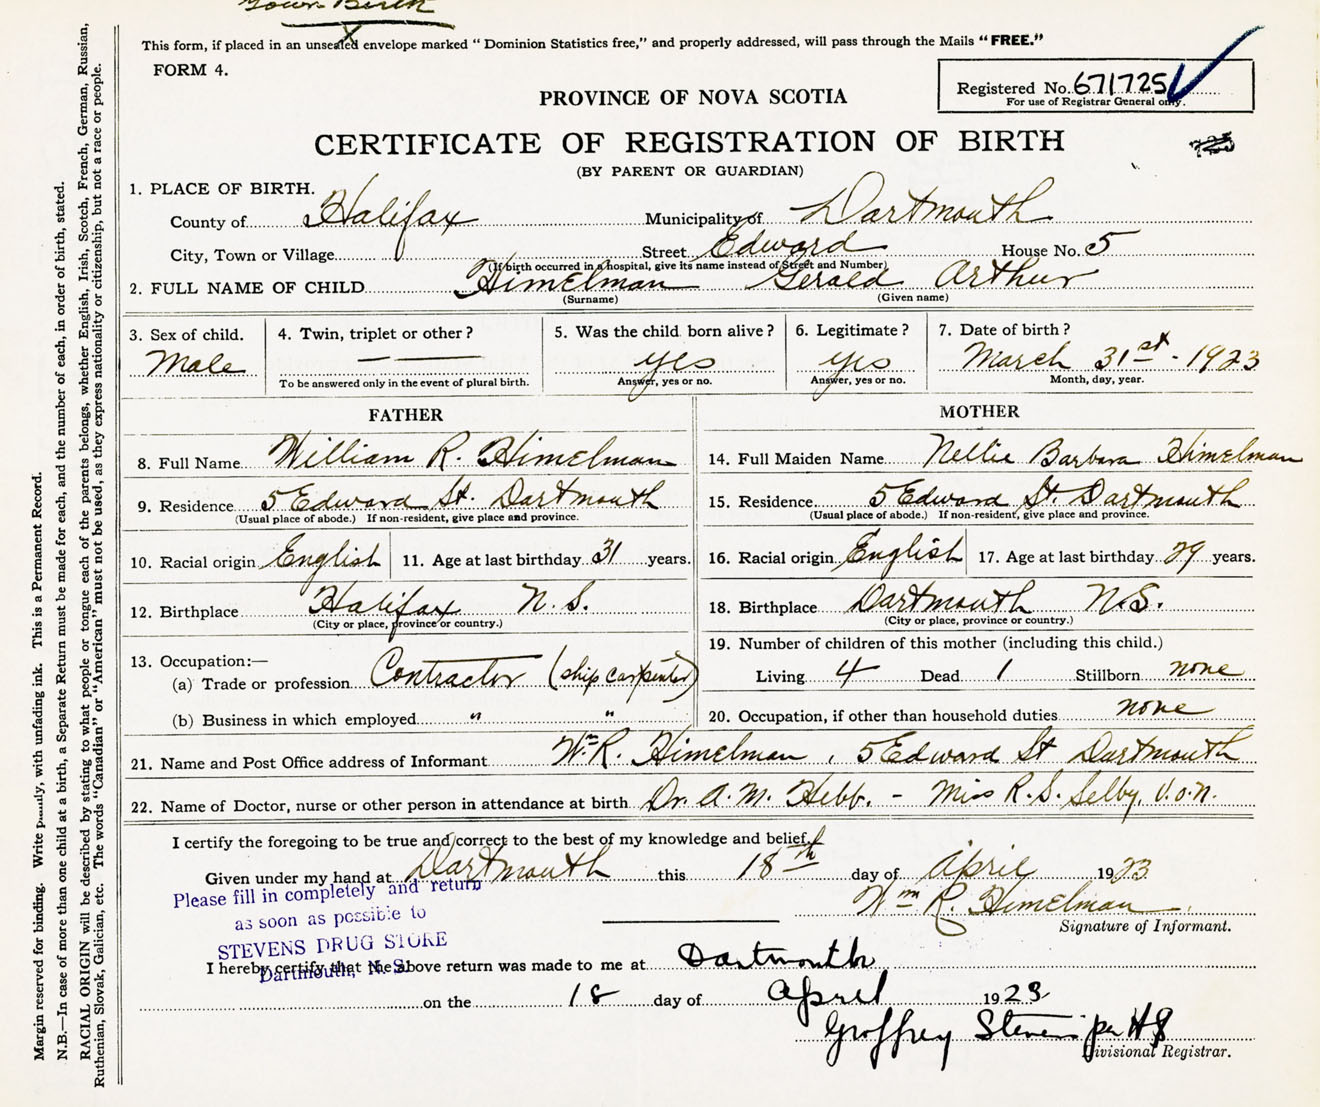 Town Birth
This form, if placed in an unsealed envelope marked "Dominion Statistics free," and properly addressed, will pass through the Mails "FREE."
FORM 4.
Registered No. 671725
For use of Registrar General only.
PROVINCE OF NOVA SCOTIA
CERTIFICATE OF REGISTRATION OF BIRTH
(BY PARENT OR GUARDIAN)
1. PLACE OF BIRTH.
County of Halifax Municipality of Dartmouth
City, Town or Village Street Edward House No. 5
(If birth occurred in a hospital, give its name instead of Street and Number)
2. FULL NAME OF CHILD Himelman Gerald Arthur
(Surname) (Given name)
3. Sex of child. 4. Twin, triplet or other? 5. Was the child born alive? 6. Legitimate? 7. Date of birth?
Male — —— yes yes March 31st - 1923
To be answered only in the event of plural birth. Answer, yes or no. Answer, yes or no. Month, day, year.
FATHER
8. Full Name William R. Himelman
9. Residence 5 Edward St. Dartmouth
(Usual place of abode.) If non-resident, give place and province.
10. Racial origin English 11. Age at last birthday 31 years.
12. Birthplace Halifax N.S.
(City or place, province or country.)
13. Occupation:—
(a) Trade or profession Contractor (ship carpenter)
(b) Business in which employed " "
MOTHER
14. Full Maiden Name Nellie Barbara Himelman
15. Residence 5 Edward St. Dartmouth
(Usual place of abode.) If non-resident, give place and province.
16. Racial origin English 17. Age at last birthday 29 years.
18. Birthplace Dartmouth N.S.
(City or place, province or country.)
19. Number of children of this mother (including this child.)
Living 4 Dead 1 Stillborn none
20. Occupation, if other than household duties none
21. Name and Post Office address of Informant Wm R. Himelman, 5 Edward St Dartmouth
22. Name of Doctor, nurse or other person in attendance at birth Dr. A. M. Hebb. - Miss R. S. Selby, V.O.N.
I certify the foregoing to be true and correct to the best of my knowledge and belief.
Given under my hand at Dartmouth this 18th day of April 1923
Wm R. Himelman
Signature of Informant.
Please fill in completely and return
as soon as possible to
STEVENS DRUG STORE
Dartmouth, N. S.
I hereby certify that the above return was made to me at Dartmouth
on the 18 day of April 1923
Geoffrey Stevens per HS
Divisional Registrar.
Margin reserved for binding. Write plainly, with unfading ink. This is a Permanent Record.
N.B.—In case of more than one child at a birth, a Separate Return must be made for each, and the number of each, in order of birth, stated.
RACIAL ORIGIN will be described by stating to what people or tongue each of the parents belongs, whether English, Irish, Scotch, French, German, Russian,
Ruthenian, Slovak, Galician, etc. The words "Canadian" or "American" must not be used, as they express nationality or citizenship, but not a race or people.